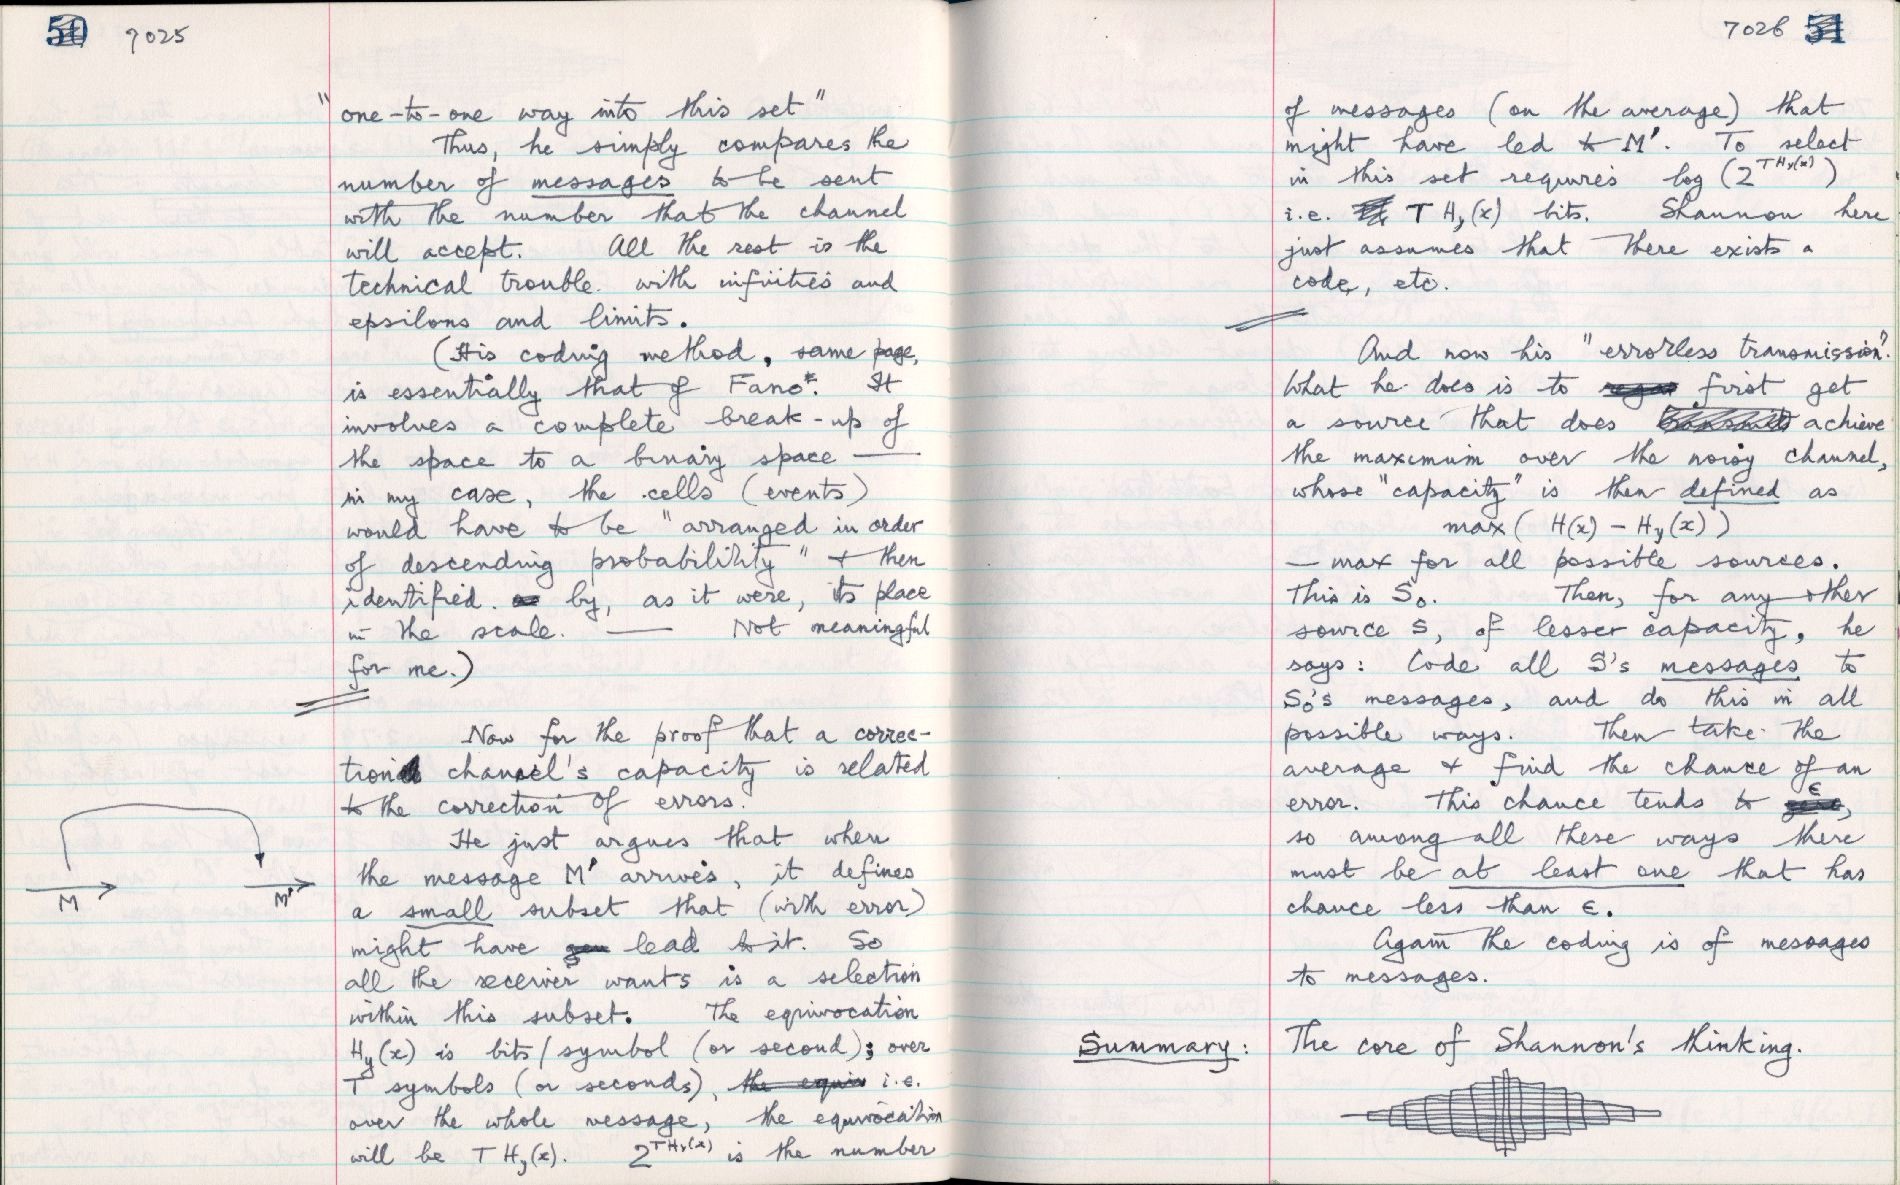 50 7025
"one-to-one way into this set"
Thus, he simply compares the
number of messages to be sent
with the number that the channel
will accept. All the rest is the
technical trouble. with infinities and
epsilons and limits.
(His coding method, same page,
is essentially that of Fano. It
involves a complete break-up of
the space to a binary space —
in my case, the cells (events)
would have to be "arranged in order
of descending probability" + then
identified. by, as it were, its place
in the scale. — Not meaningful
for me.)
Now for the proof that a correc-
tion channel's capacity is related
to the correction of errors.
He just argues that when
the message M' arrives, it defines
a small subset that (with error)
might have lead to it. So
all the receiver wants is a selection
within this subset. The equivocation
Hy(x) is bits/symbol (or second); over
T symbols (or seconds), the equiv i.e.
over the whole message, the equivocation
will be T Hy(x). 2^THy(x) is the number
M M'
7026 51
of messages (on the average) that
might have led to M'. To select
in this set requires log (2^THy(x))
i.e. T Hy(x) bits. Shannon here
just assumes that there exists a
code, etc.
And now his "errorless transmission".
What he does is to first get
a source that does achieve
the maximum over the noisy channel,
whose "capacity" is then defined as
max ( H(x) – Hy(x) )
— max for all possible sources.
This is S₀. Then, for any other
source S, of lesser capacity, he
says: Code all S's messages to
S₀'s messages, and do this in all
possible ways. Then take the
average + find the chance of an
error. This chance tends to ε,
so among all these ways there
must be at least one that has
chance less than ε.
Again the coding is of messages
to messages.
Summary: The core of Shannon's thinking.